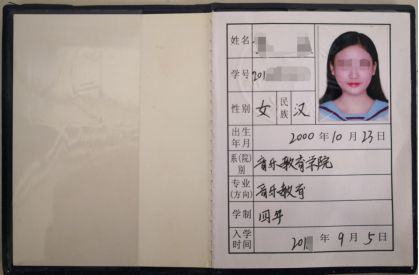 姓名
学号 201
性别 女 民族 汉
出生年月 2000年10月23日
系(院)别 音乐教育学院
专业(方向) 音乐教育
学制 四年
入学时间 201 年9月5日